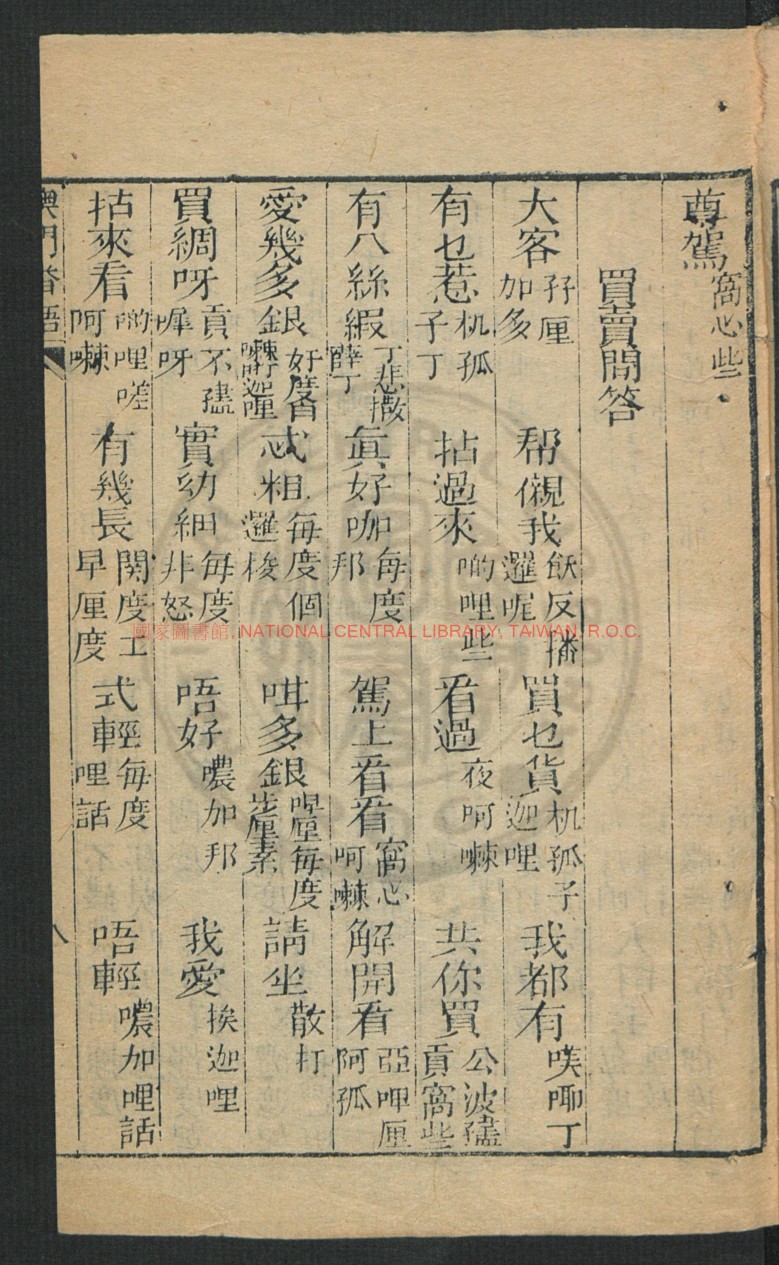 尊駕 窩心些
買賣問答
大客 孖厘加多 帮儭我 飲反播邏呢 買乜貨 机孤子迦哩 我都有 噗哪丁
有乜惹 机孤子丁 拈過來 啲哩些 看過 夜呵嗽 共你買 公波孻貢窩些
有八絲緞 丁悲撒薛丁 眞好咖 每度邦 駕上看看 窩心呵嗽 解開看 亞呷厘阿孤
愛幾多銀 忒粗 每度個邏梭 咁多銀 請坐 散打
買綢呀 貢不孻犀呀 實幼細 每度非怒 唔好 噥加邦 我愛 挨迦哩
拈來看 啲哩嗟呵嗽 有幾長 関度工早厘度 式輕 每度哩話 唔輕 噥加哩話
澳門番語
八
國家圖書館, NATIONAL CENTRAL LIBRARY, TAIWAN, R.O.C.